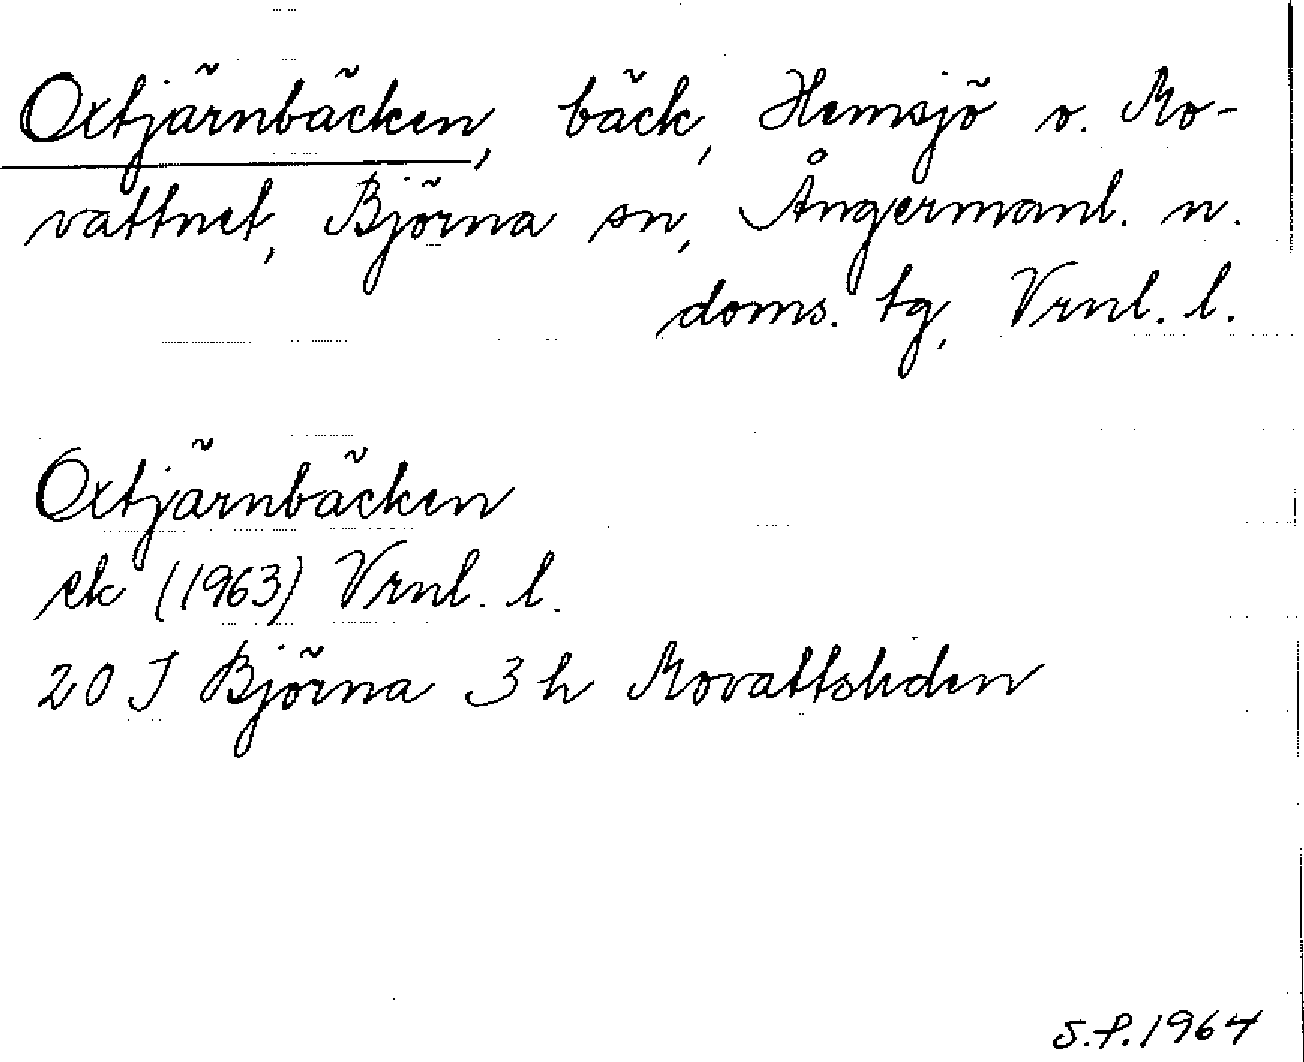 Oxtjärnbäcken, bäck, Hemsjö o. Mo-
vattnet, Björna sn, Ångermanl. n.
doms. tg, Vrnl. l.
Oxtjärnbäcken
ek (1963) Vrnl. l.
20 J Björna 3 h Movattsliden
S.P. 1964